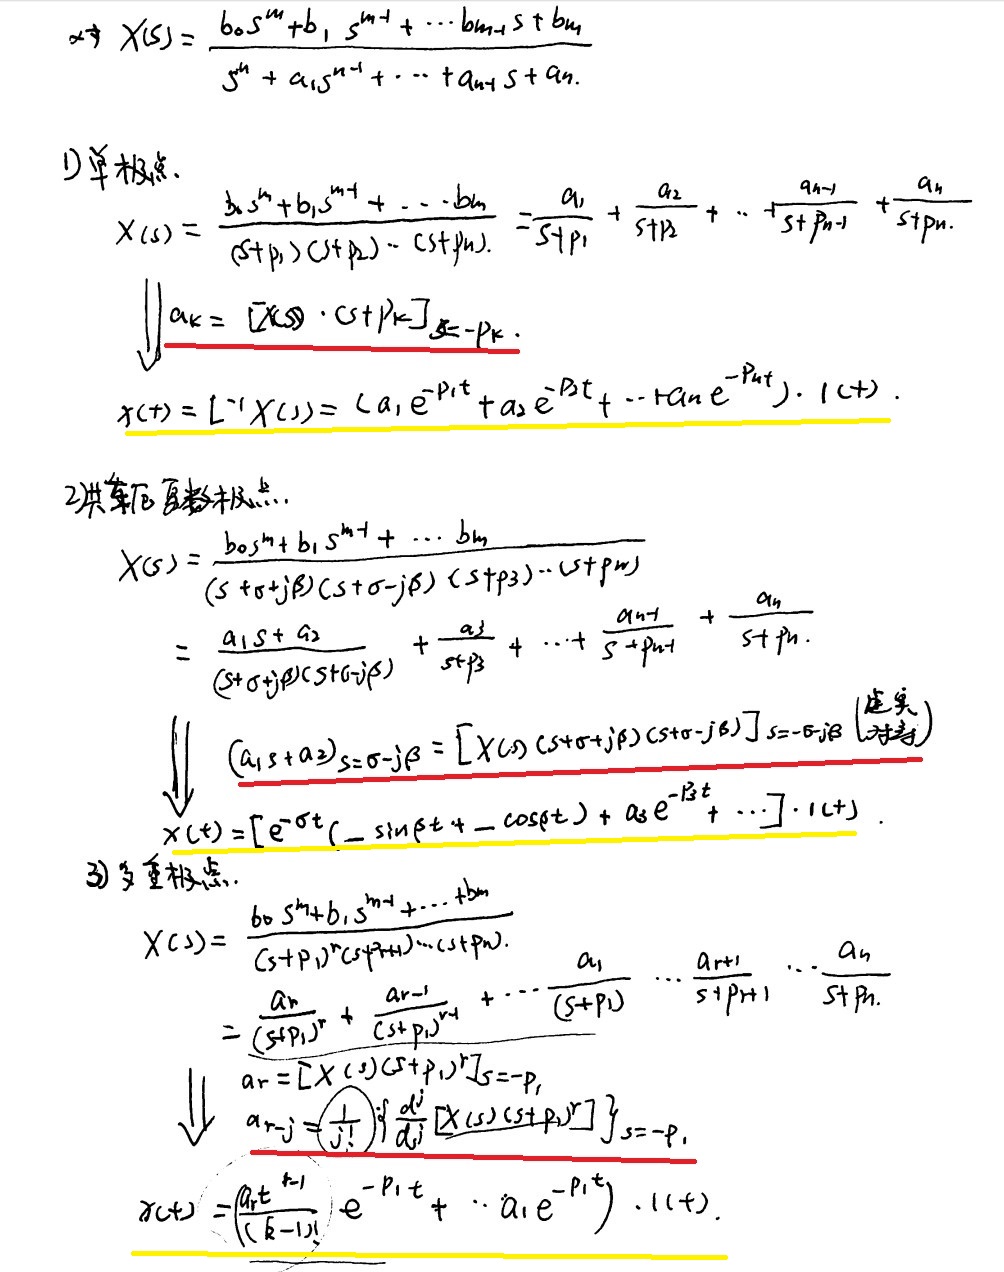 X(s) = (b₀s^m + b₁s^(m-1) + ⋯ b_(m-1)s + b_m) / (s^n + a₁s^(n-1) + ⋯ + a_(n-1)s + a_n.)
1) 单极点.
X(s) = (b₀s^m + b₁s^(m-1) + ⋯ b_m) / ((s+p₁)(s+p₂)⋯(s+p_n).) = a₁/(s+p₁) + a₂/(s+p₂) + ⋯ + a_(n-1)/(s+p_(n-1)) + a_n/(s+p_n.)
⇓ a_k = [X(s)·(s+p_k]_(s=-p_k).
x(t) = L⁻¹X(s) = (a₁e^(-p₁t) + a₂e^(-p₂t) + ⋯ + a_n e^(-p_n t))·1(t).
2) 共轭复数极点.
X(s) = (b₀s^m + b₁s^(m-1) + ⋯ b_m) / ((s+σ+jβ)(s+σ-jβ)(s+p₃)⋯(s+p_n))
= (a₁s + a₂)/((s+σ+jβ)(s+σ-jβ)) + a₃/(s+p₃) + ⋯ + a_(n-1)/(s+p_(n-1)) + a_n/(s+p_n.)
⇓ (a₁s+a₂)_(s=σ-jβ) = [X(s)(s+σ+jβ)(s+σ-jβ)]_(s=-σ-jβ) (虚实对等)
x(t) = [e^(-σt)(_ sinβt + _ cosβt) + a₃e^(-p₃t) + ⋯]·1(t).
3) 多重极点.
X(s) = (b₀s^m + b₁s^(m-1) + ⋯ + b_m) / ((s+p₁)^r(s+p_(r+1))⋯(s+p_n).)
= a_r/(s+p₁)^r + a_(r-1)/(s+p₁)^(r-1) + ⋯ a₁/(s+p₁) ⋯ a_(r+1)/(s+p_(r+1)) ⋯ a_n/(s+p_n.)
⇓ a_r = [X(s)(s+p₁)^r]_(s=-p₁)
a_(r-j) = 1/j! {d^j/ds^j [X(s)(s+p₁)^r]}_(s=-p₁)
x(t) = (a_r t^(k-1)/(k-1)! e^(-p₁t) + ⋯ a₁e^(-p₁t))·1(t).